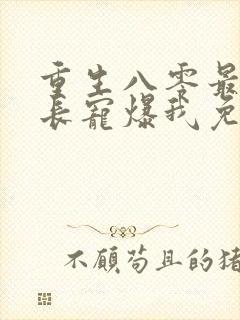 重生八零最
长宠爆我免
不顾苟且的猪